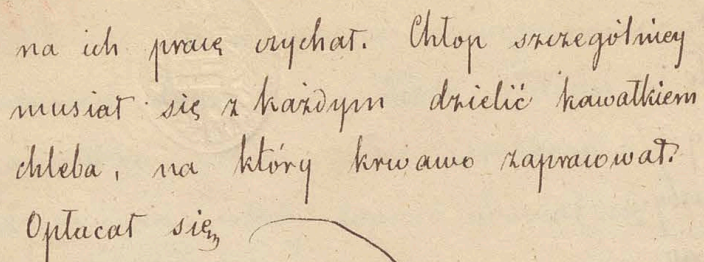 na ich pracę czychał. Chłop szczególniey
musiał się z każdym dzielić kawałkiem
chleba, na który krwawo zapracował.
Opłacał się